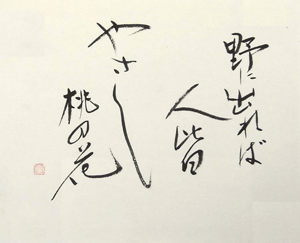 野に出れば
人皆
やさし
桃の花